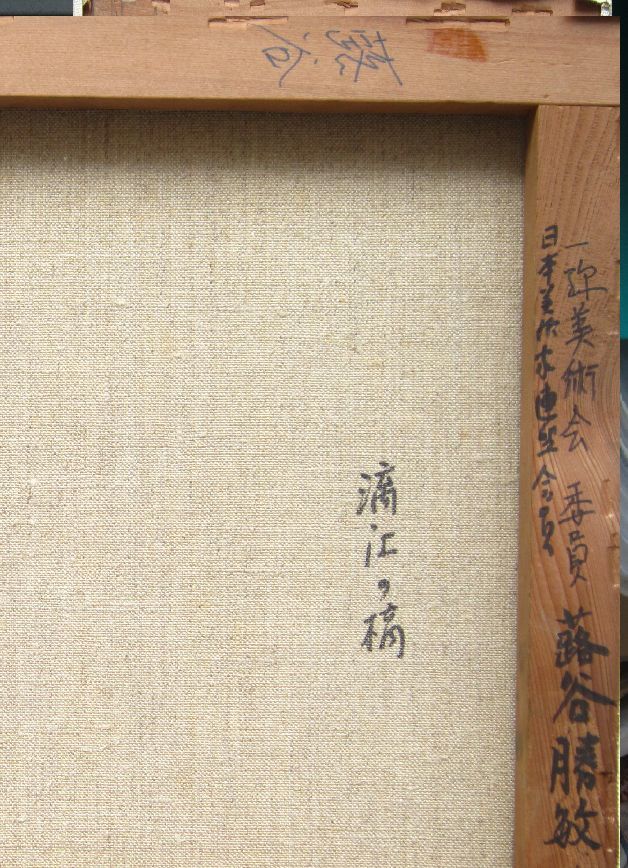 蕗谷
一線美術会 委員 蕗谷勝敏
日本美術家連盟会員
漓江の橋